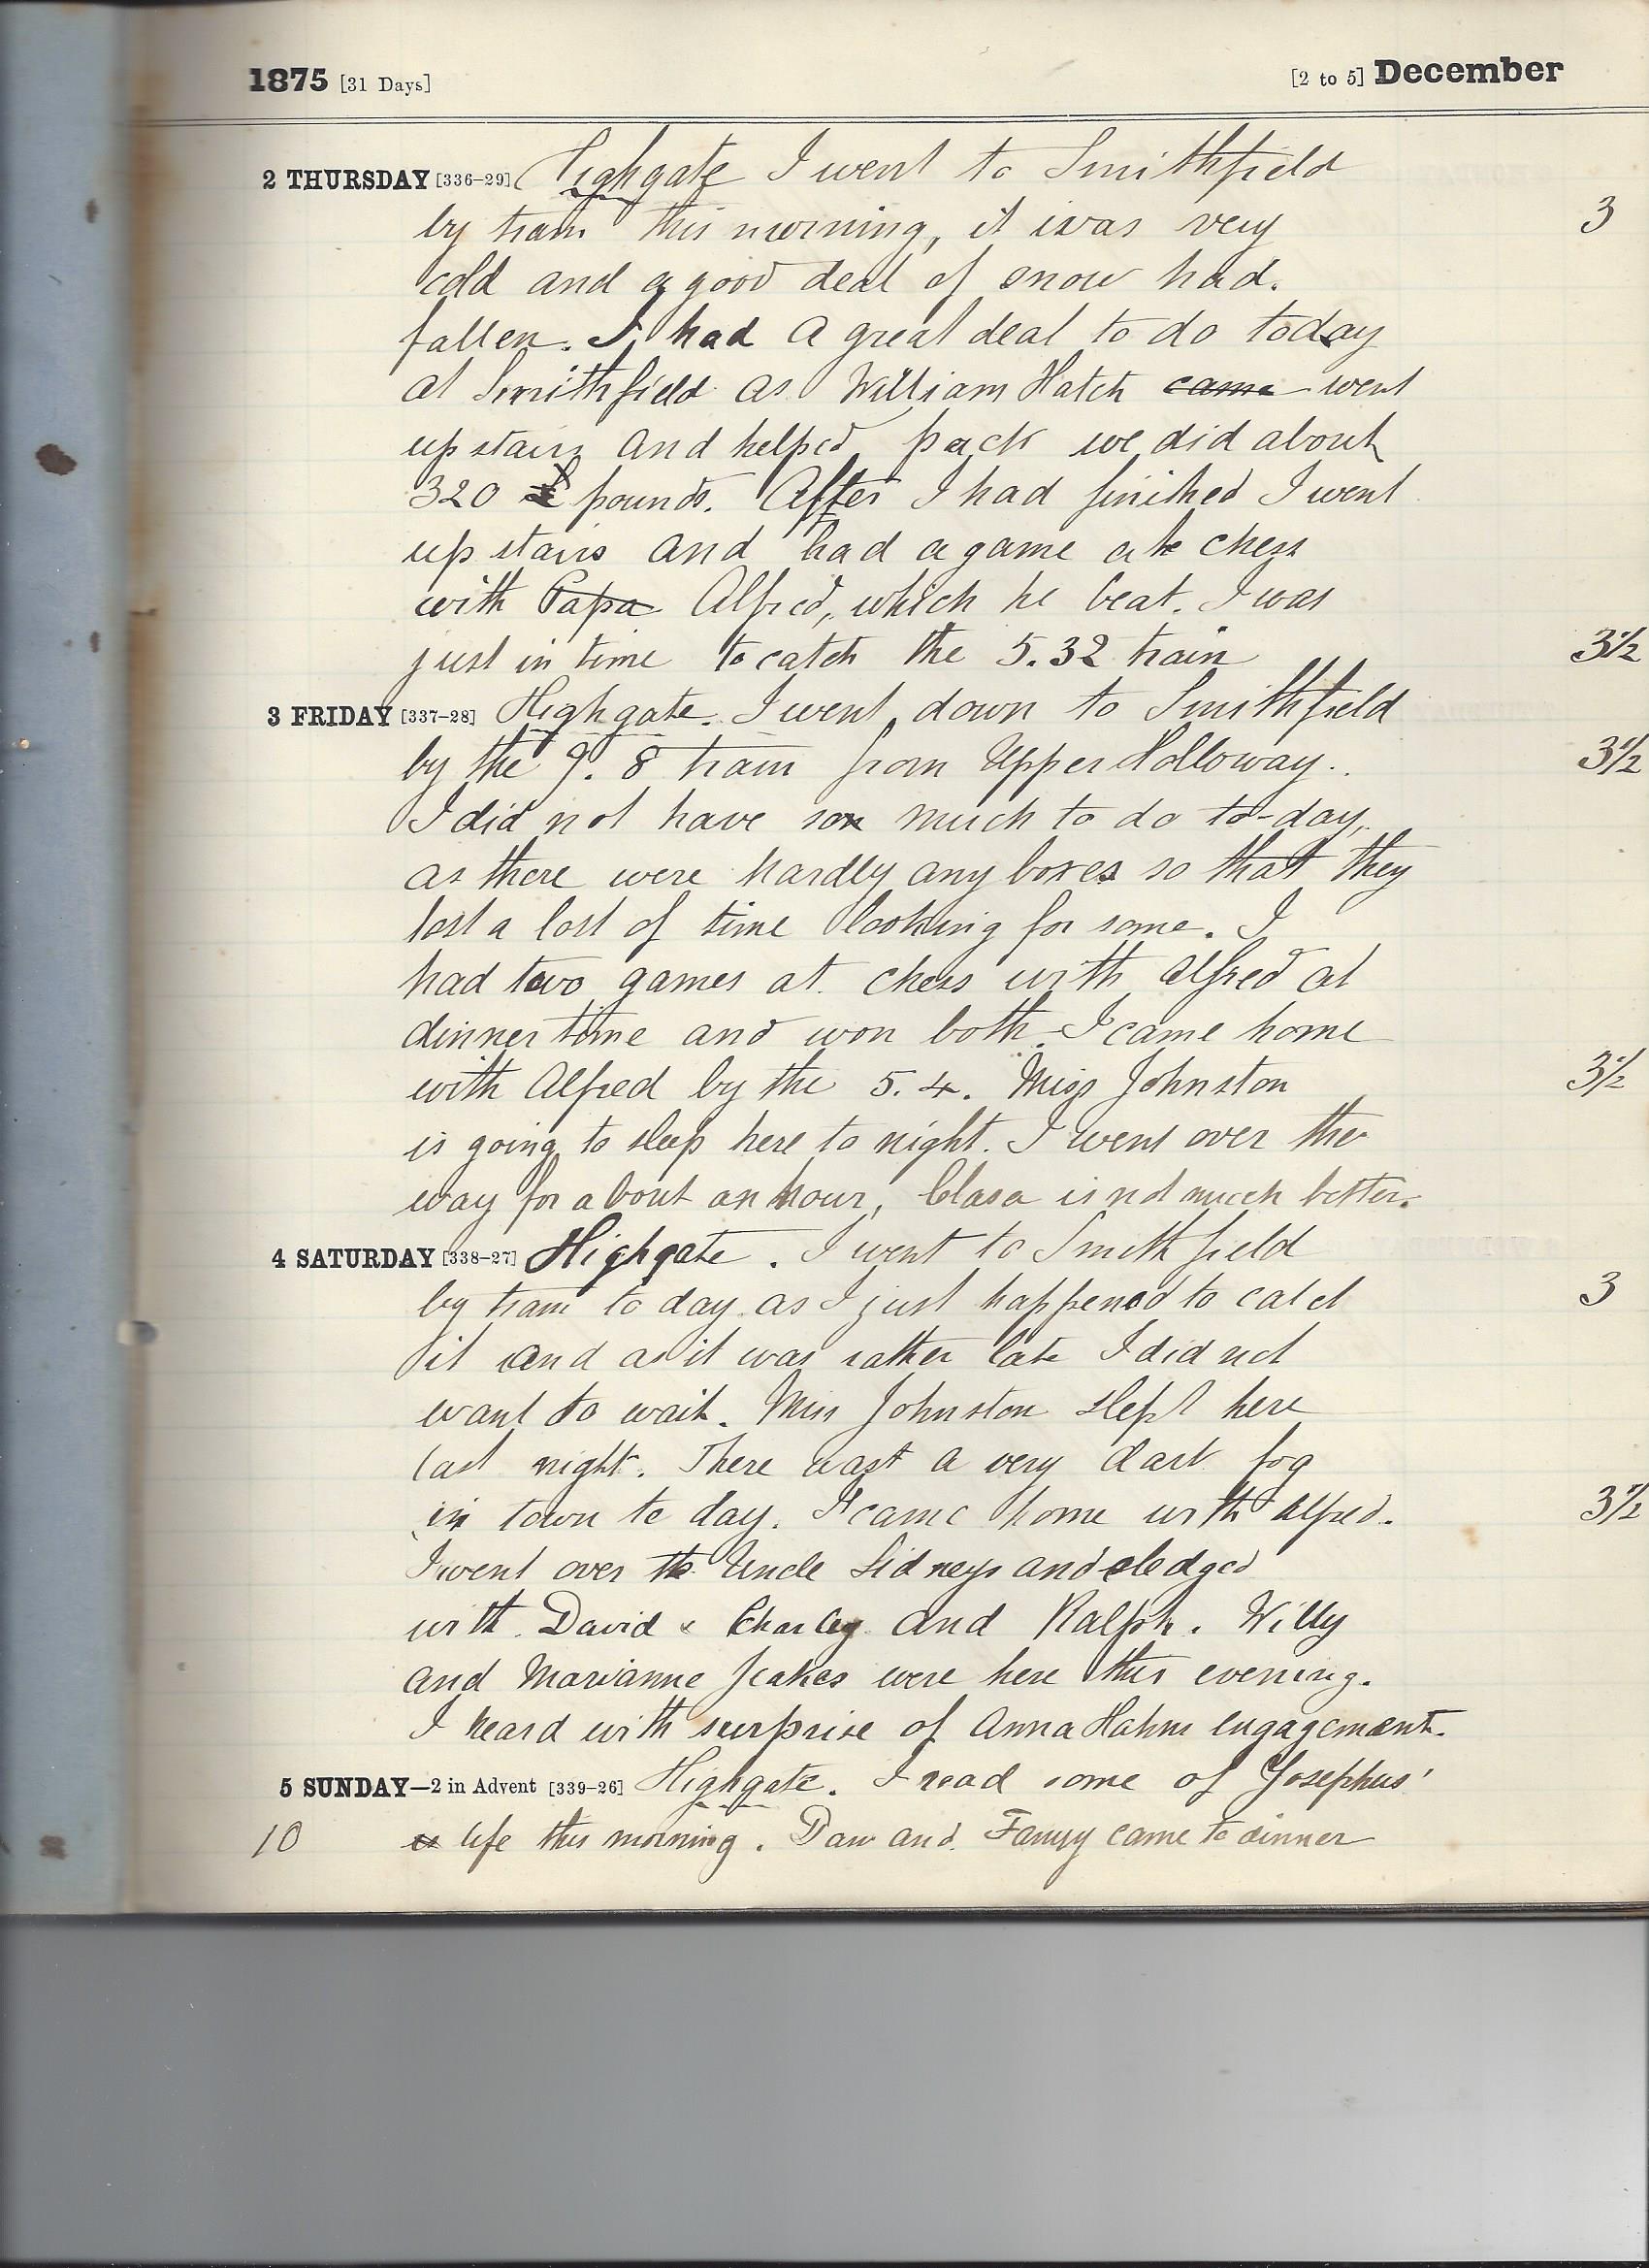 1875 [31 Days] [2 to 5] December
2 THURSDAY [336-29] Highgate I went to Smithfield
by tram this morning, it was very 3
cold and a good deal of snow had.
fallen. I had a great deal to do today
at Smithfield as William Hatch came went
up stairs and helped pack we did about
320 £ pounds. After I had finished I went
up stairs and had a game at chess
with Papa Alfred, which he beat. I was
just in time to catch the 5.32 train 3½
3 FRIDAY [337-28] Highgate. I went down to Smithfield
by the 9. 8 train from Upper Holloway. 3½
I did not have so much to do to-day,
as there were hardly any boxes so that they
lost a lost of time looking for some. I
had two games at chess with Alfred at
dinner time and won both. I came home
with Alfred by the 5. 4. Miss Johnston 3½
is going to sleep here to night. I went over the
way for about an hour, Clara is not much better.
4 SATURDAY [338-27] Highgate. I went to Smithfield
by tram to day as I just happened to catch 3
it and as it was rather late I did not
want to wait. Miss Johnston slept here
last night. There was a very dark fog
in town to day. I came home with Alfred. 3½
I went over to Uncle Sidneys and sledged
with David & Charley and Ralph. Willy
and Marianne Jeakes were here this evening.
I heard with surprise of Anna Hahns engagement.
5 SUNDAY—2 in Advent [339-26] Highgate. I read some of Josephus'
10 life this morning. Dan and Fanny came to dinner